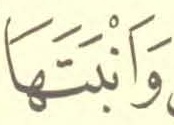 وَأَنْبَتَهَا